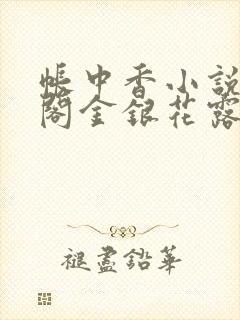 帳中香小說
閣金銀花露
褪盡鉛華